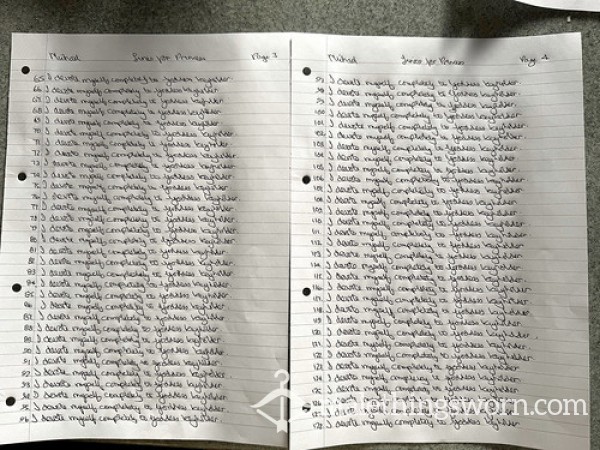 Michael Lines for Princess Page 3
65 I devote myself completely to Goddess keyholder.
66 I devote myself completely to Goddess keyholder.
67 I devote myself completely to Goddess keyholder.
68 I devote myself completely to Goddess keyholder.
69 I devote myself completely to Goddess keyholder.
70 I devote myself completely to Goddess keyholder.
71 I devote myself completely to Goddess keyholder.
72 I devote myself completely to Goddess keyholder.
73 I devote myself completely to Goddess keyholder.
74 I devote myself completely to Goddess keyholder.
75 I devote myself completely to Goddess keyholder.
76 I devote myself completely to Goddess keyholder.
77 I devote myself completely to Goddess keyholder.
78 I devote myself completely to Goddess keyholder.
79 I devote myself completely to Goddess keyholder.
80 I devote myself completely to Goddess keyholder.
81 I devote myself completely to Goddess keyholder.
82 I devote myself completely to Goddess keyholder.
83 I devote myself completely to Goddess keyholder.
84 I devote myself completely to Goddess keyholder.
85 I devote myself completely to Goddess keyholder.
86 I devote myself completely to Goddess keyholder.
87 I devote myself completely to Goddess keyholder.
88 I devote myself completely to Goddess keyholder.
89 I devote myself completely to Goddess keyholder.
90 I devote myself completely to Goddess keyholder.
91 I devote myself completely to Goddess keyholder.
92 I devote myself completely to Goddess keyholder.
93 I devote myself completely to Goddess keyholder.
94 I devote myself completely to Goddess keyholder.
95 I devote myself completely to Goddess keyholder.
96 I devote myself completely to Goddess keyholder.
Michael Lines for Princess Page 4
97 I devote myself completely to Goddess keyholder.
98 I devote myself completely to Goddess keyholder.
99 I devote myself completely to Goddess keyholder.
100 I devote myself completely to Goddess keyholder.
101 I devote myself completely to Goddess keyholder.
102 I devote myself completely to Goddess keyholder.
103 I devote myself completely to Goddess keyholder.
104 I devote myself completely to Goddess keyholder.
105 I devote myself completely to Goddess keyholder.
106 I devote myself completely to Goddess keyholder.
107 I devote myself completely to Goddess keyholder.
108 I devote myself completely to Goddess keyholder.
109 I devote myself completely to Goddess keyholder.
110 I devote myself completely to Goddess keyholder.
111 I devote myself completely to Goddess keyholder.
112 I devote myself completely to Goddess keyholder.
113 I devote myself completely to Goddess keyholder.
114 I devote myself completely to Goddess keyholder.
115 I devote myself completely to Goddess keyholder.
116 I devote myself completely to Goddess keyholder.
117 I devote myself completely to Goddess keyholder.
118 I devote myself completely to Goddess keyholder.
119 I devote myself completely to Goddess keyholder.
120 I devote myself completely to Goddess keyholder.
121 I devote myself completely to Goddess keyholder.
122 I devote myself completely to Goddess keyholder.
123 I devote myself completely to Goddess keyholder.
124 I devote myself completely to Goddess keyholder.
125 I devote myself completely to Goddess keyholder.
126 I devote myself completely to Goddess keyholder.
127 I devote myself completely to Goddess keyholder.
128 I devote myself completely to Goddess keyholder.
allthingsworn.com